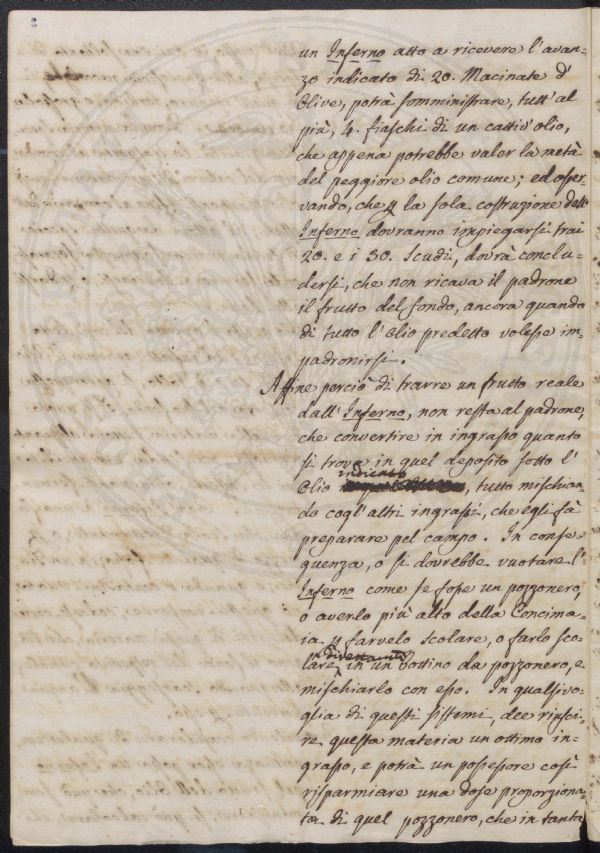 un Inferno atto a ricevere l'avan-
zo indicato di 20. Macinate d'
Olive, potrà somministrare, tutt'al
più, 4. fiaschi di un cattiv'olio,
che appena potrebbe valer la metà
del peggiore olio comune; ed osser-
vando, che p la sola costruzione dell'
Inferno dovranno impiegarsi trai
20. e i 30. Scudi, dovrà conclu-
dersi, che non ricava il padrone
il frutto del fondo, ancora quando
di tutto l'Olio predetto volesse im-
padronirsi.
Affine perciò di trarre un frutto reale
dall'Inferno, non resta al padrone,
che convertire in ingrasso quanto
si trova in quel deposito sotto l'
Olio indicato, tutto mischian-
do cogl'altri ingrassi, che egli fà
preparare pel campo. In conse-
quenza, o si dovrebbe vuotare l'
Inferno come se fosse un pozzonero,
o averlo più alto della Concima-
ia p farvelo scolare, o farlo sco-
lare direttamte in un bottino da pozzonero, e
mischiarlo con esso. In qualsivo-
glia di questi sistemi, dee riusci-
re questa materia un ottimo in-
grasso, e potrà un possessore così
risparmiare una dose proporziona-
ta di quel pozzonero, che in tanta